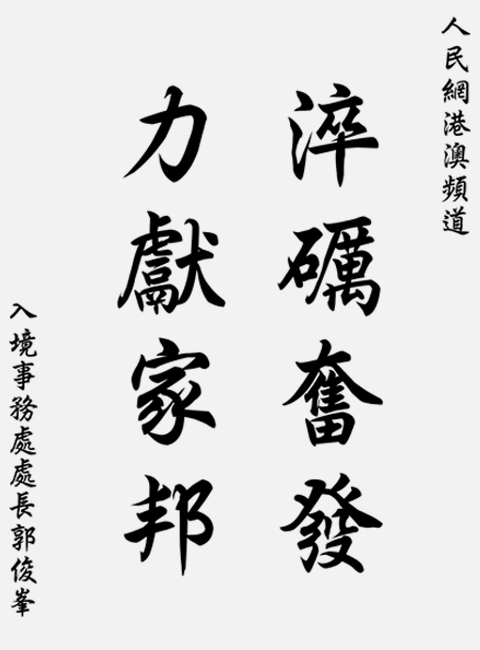 人民網港澳頻道
淬礪奮發
力獻家邦
入境事務處處長郭俊峯